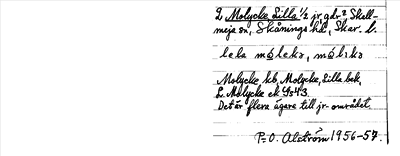 2 Molycke Lilla 1/2 jr. gdr. 2 Skall-
meja sn, Skånings hd, Skar. l.
Molycke kb, Molycke, Lilla bok,
L. Molycke ek 4543.
Det är flera ägare till jr. området.
P=O. Alström 1956-57.